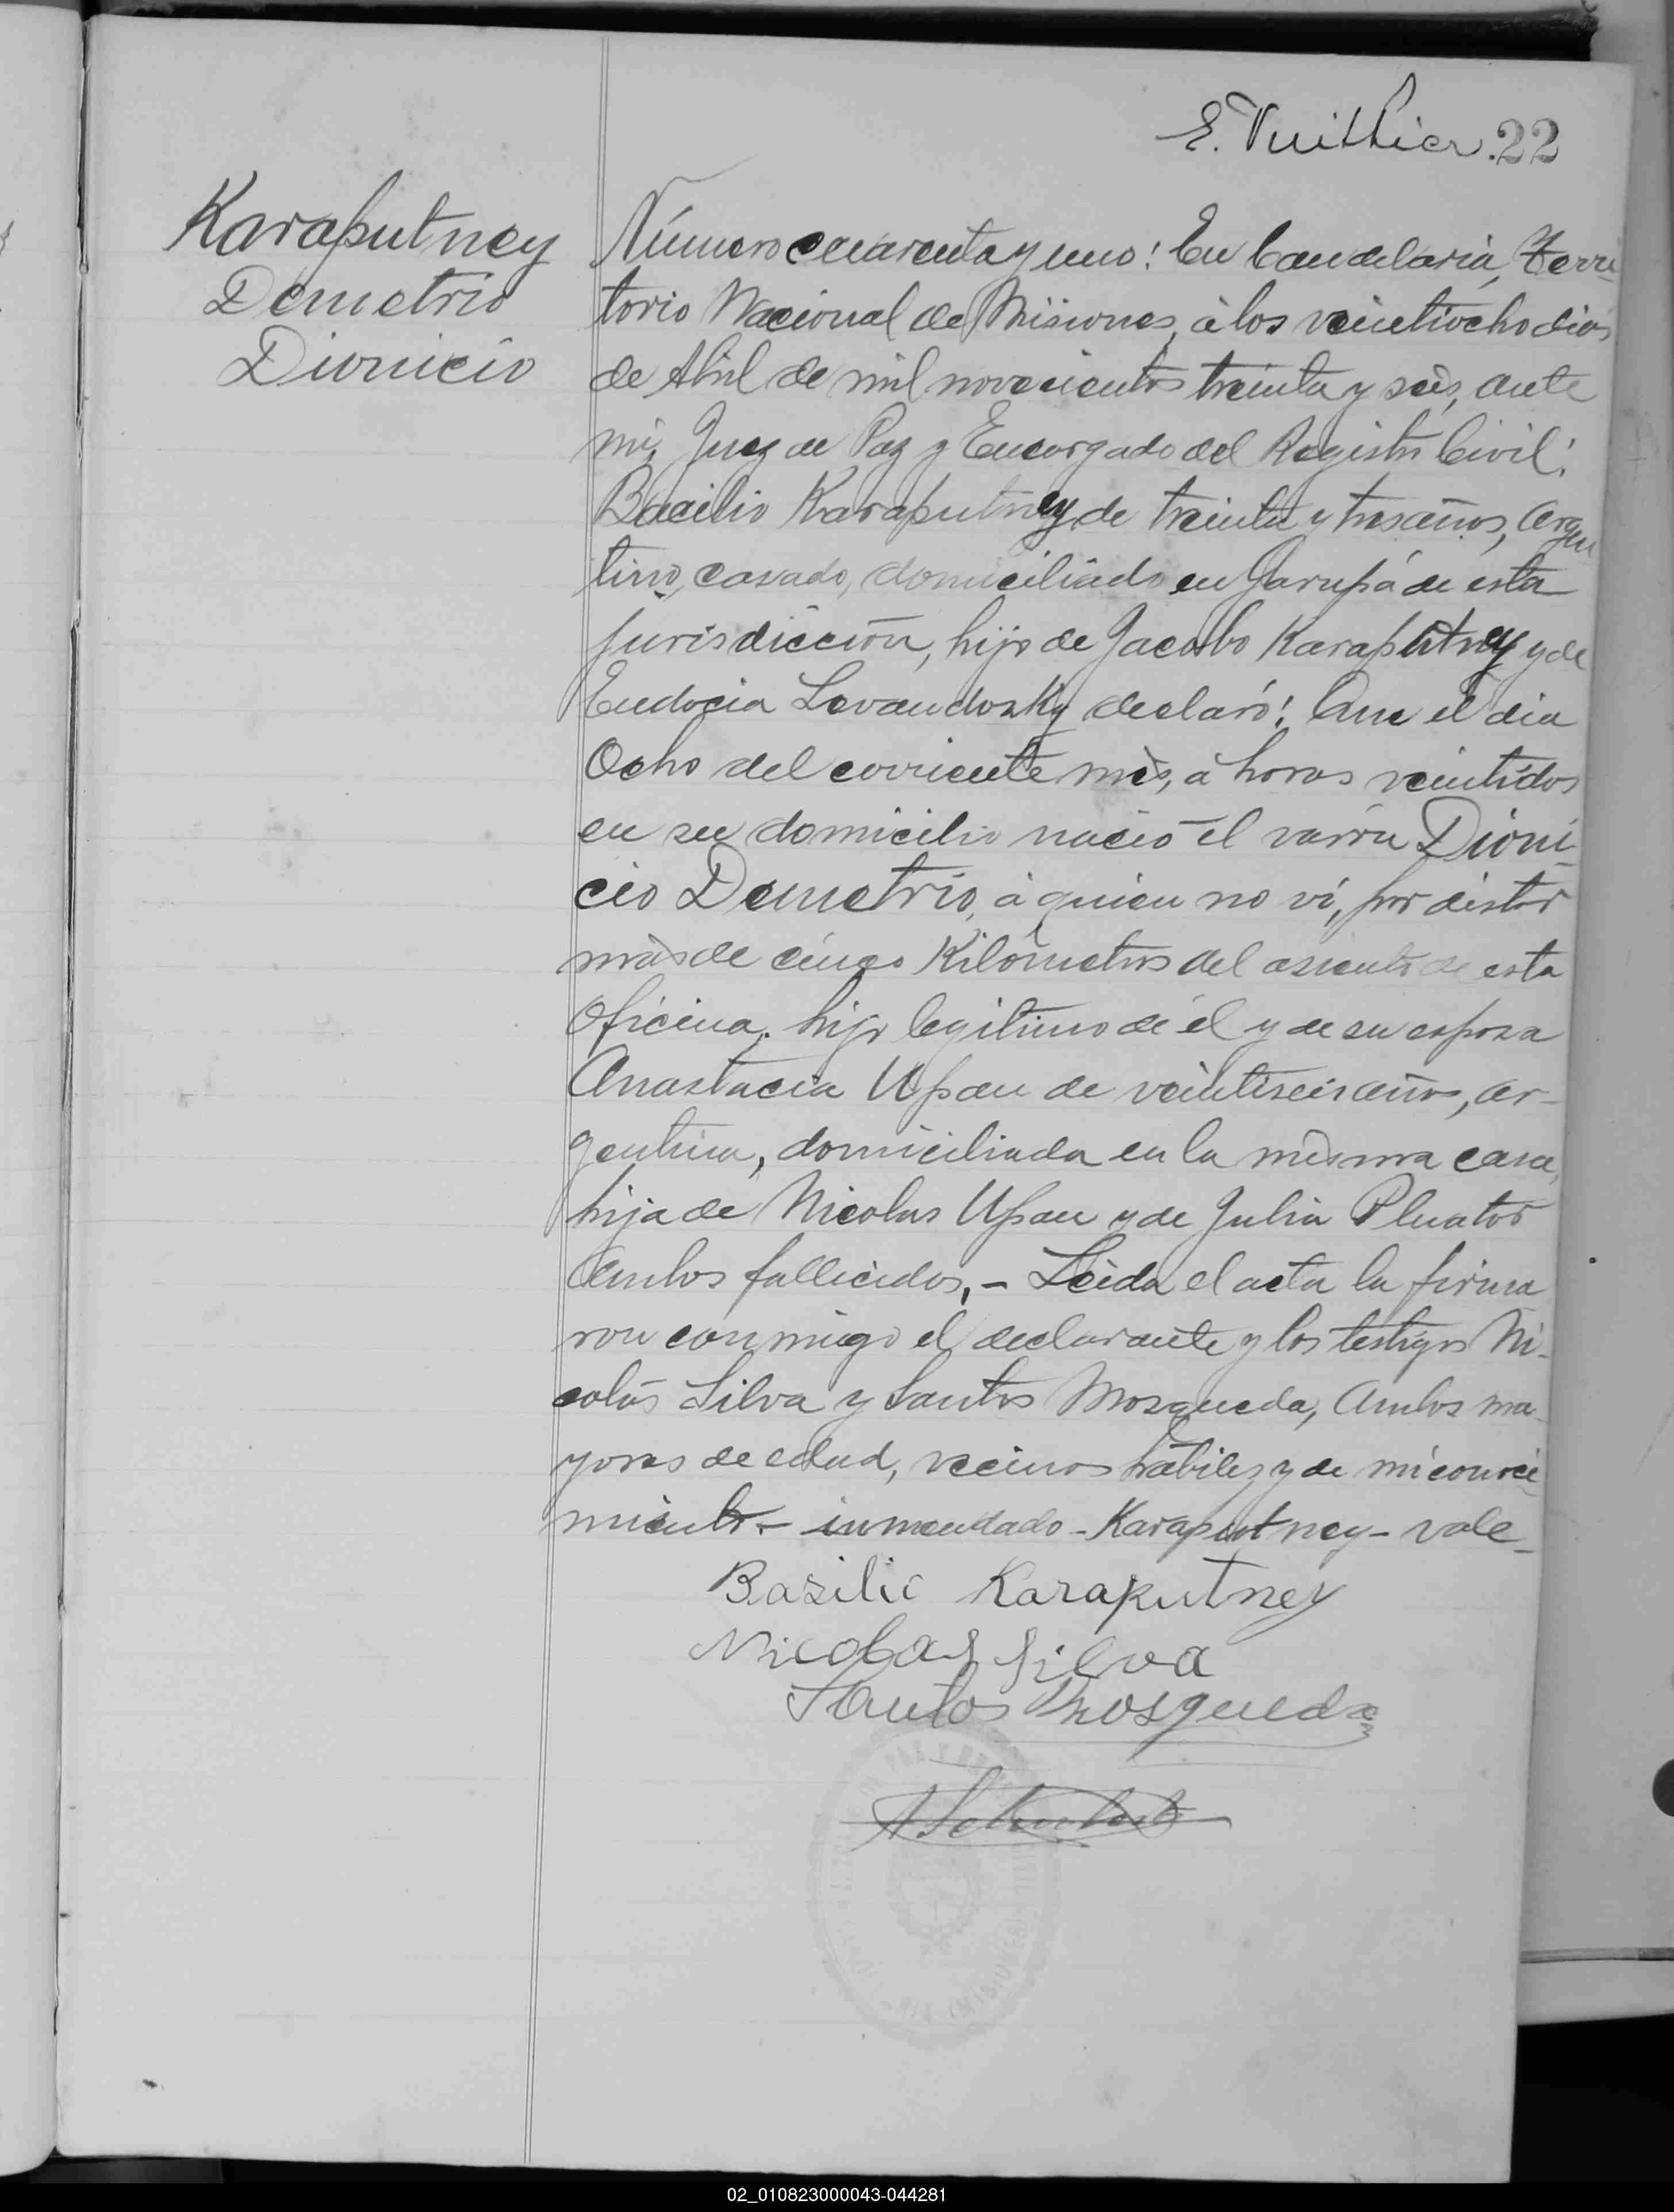 E. Vuithier. 22
Karaputney
Demetrio
Dionicio
Número cuarenta y uno: En Candelaria, Terri
torio Nacional de Misiones, à los veintiocho dias
de Abril de mil novecientos treinta y seis, ante
mi, Juez de Paz y Encargado del Registro Civil:
Bacilio Karaputney de treinta y tres años, Argen
tino, casado, domiciliado en Garupá de esta
jurisdicción, hijo de Jacobo Karaputney y de
Eudocia Levandosky declaró: Que el dia
Ocho del corriente mès, à horas veintidos
en su domicilio nació el varón Dioni-
cio Demetrio, à quien no vi, por distar
màs de cinco Kilómetros del asiento de esta
Oficina. hijo legitimo de él y de su esposa
Anastacia Upau de veintiseis años, ar-
gentina, domiciliada en la misma casa,
hija de Nicolas Upau y de Julia Pluator
Ambos fallecidos, - Leida el acta la firma
ron conmigo el declarante y los testigos Ni-
colás Silva y Santos Mosqueda, Ambos ma-
yores de edad, vecinos hábiles y de mi conoci
miento. - inmendado - Karaputney - vale -
Basilio Karaputney
Nicolas Silva
Santos Mosqueda
02_010823000043-044281